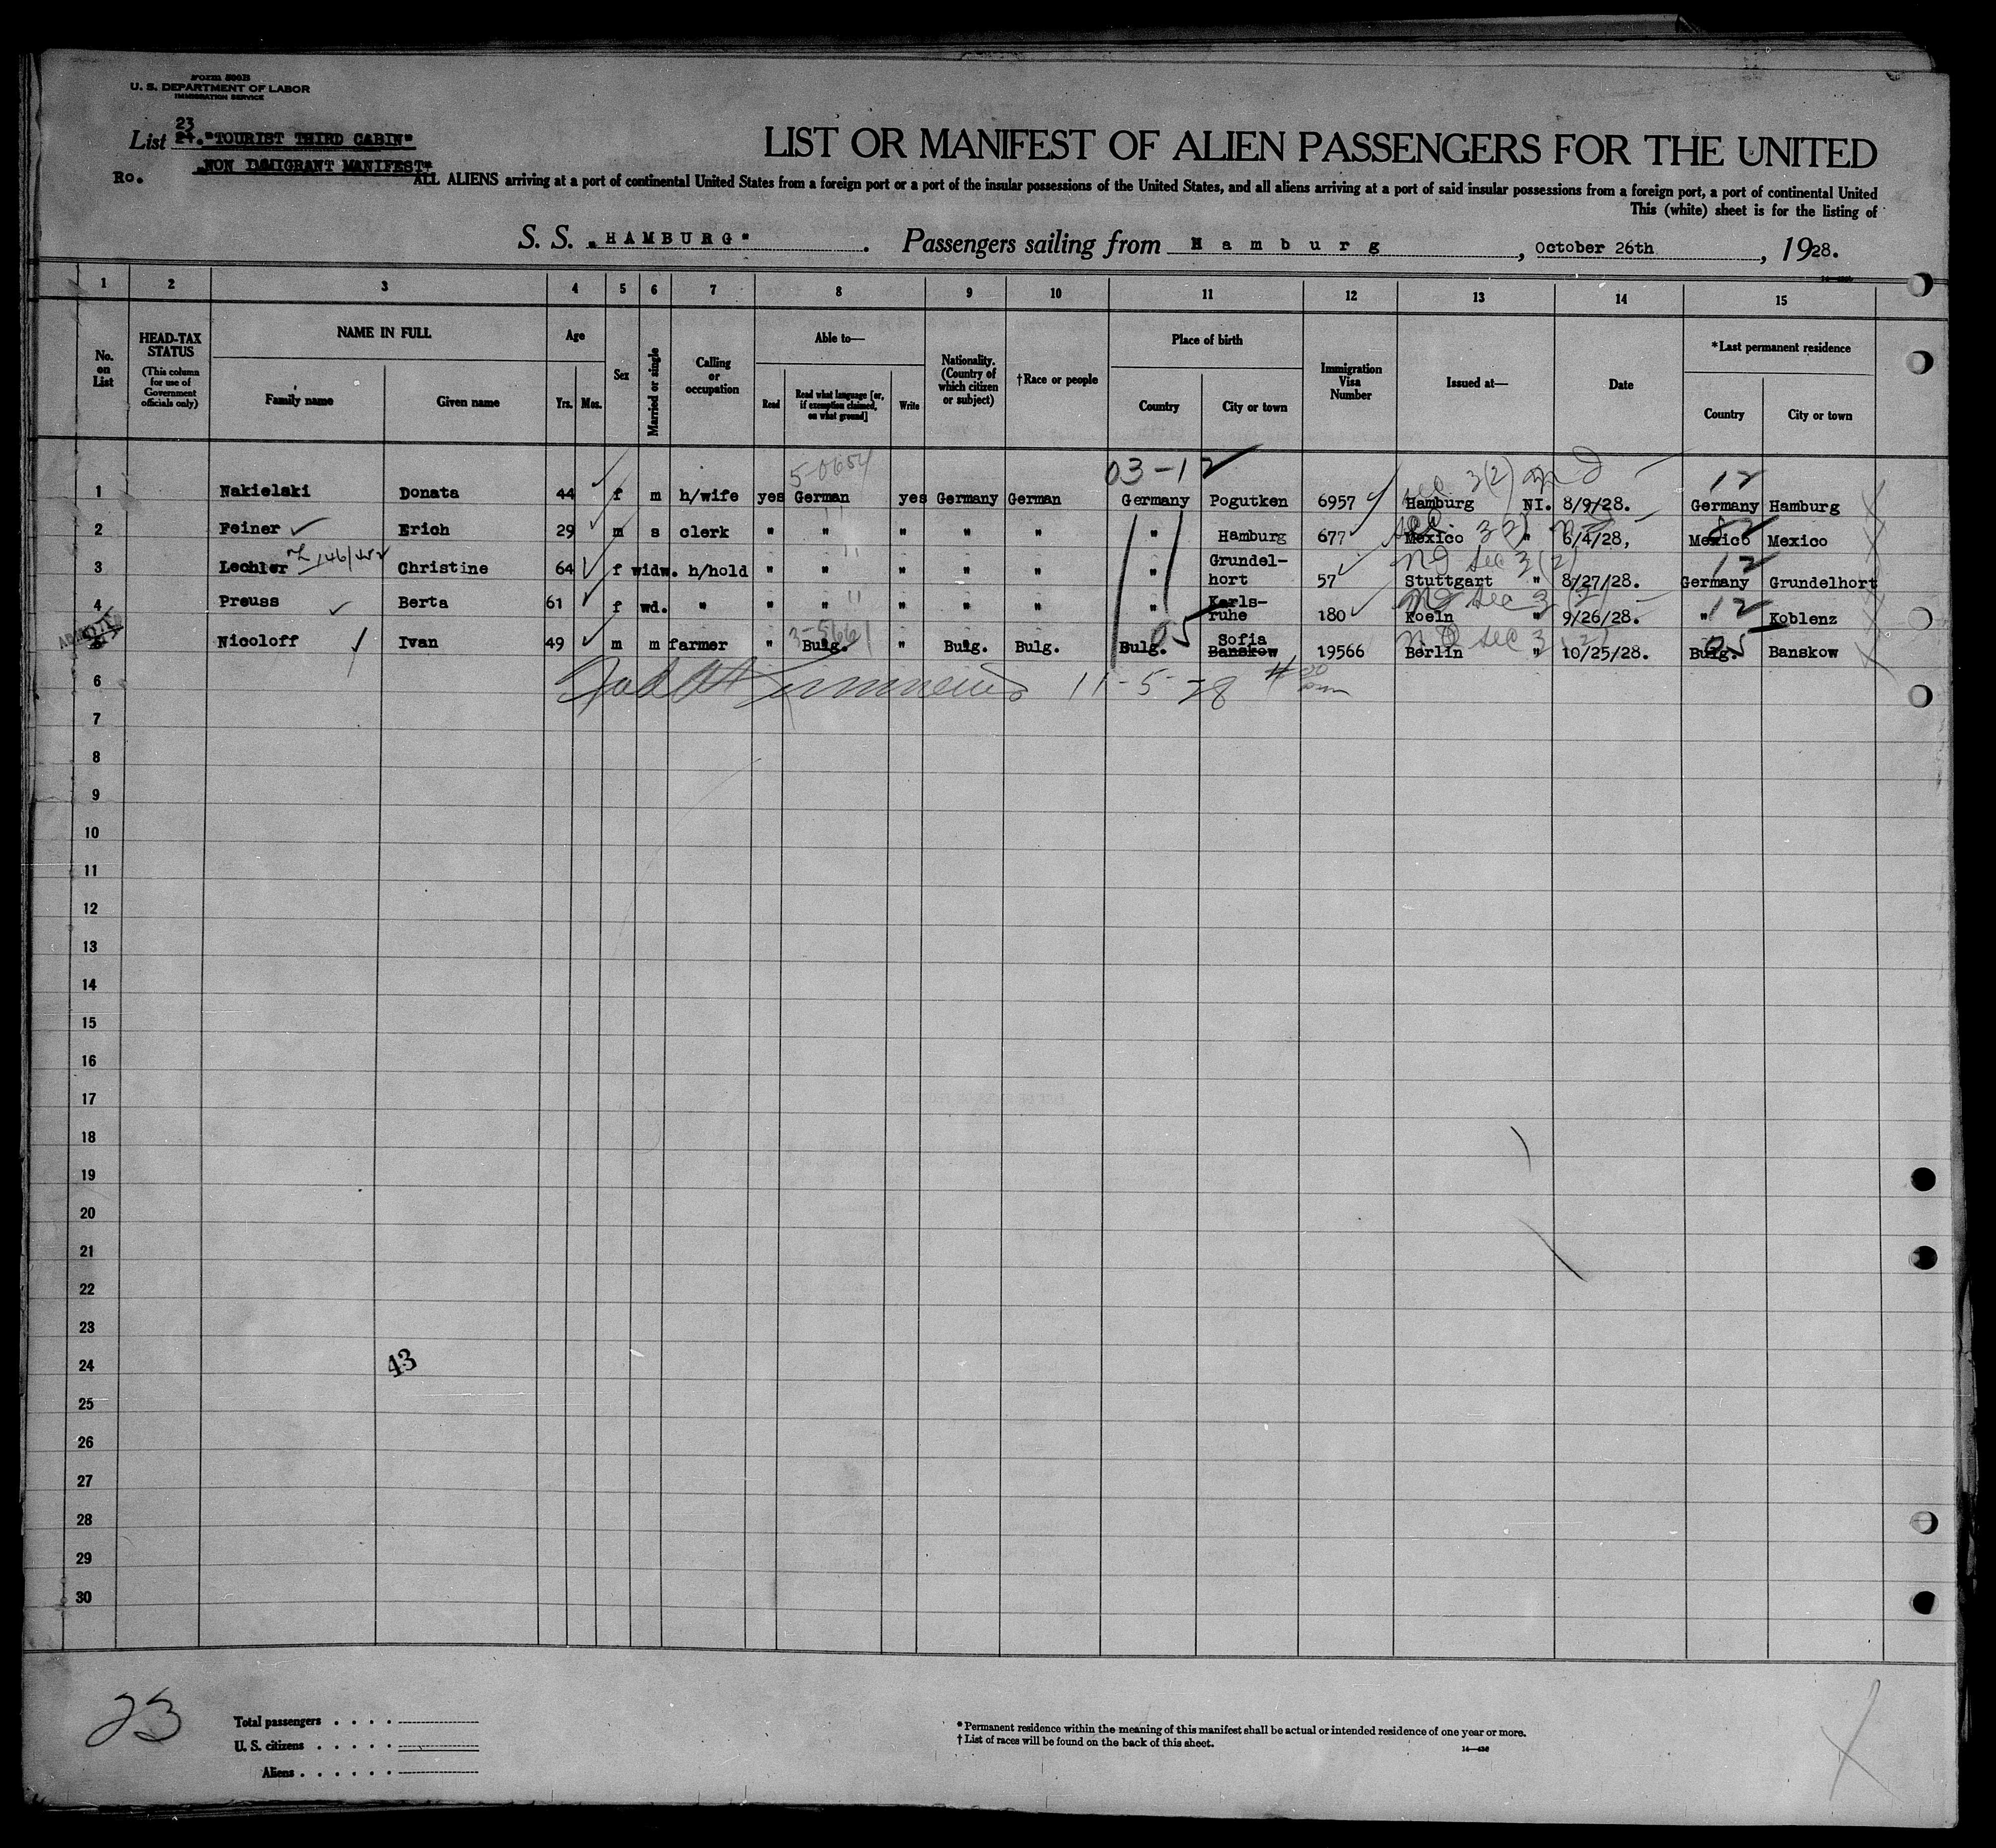 Form 500B
U. S. DEPARTMENT OF LABOR
IMMIGRATION SERVICE
23
List 24. "TOURIST THIRD CABIN"
"NON IMMIGRANT MANIFEST"
Ro.
LIST OR MANIFEST OF ALIEN PASSENGERS FOR THE UNITED
ALL ALIENS arriving at a port of continental United States from a foreign port or a port of the insular possessions of the United States, and all aliens arriving at a port of said insular possessions from a foreign port, a port of continental United
This (white) sheet is for the listing of
S. S. "HAMBURG" . Passengers sailing from Hamburg , October 26th , 1928.
1 2 3 4 5 6 7 8 9 10 11 12 13 14 15
No. on List
HEAD-TAX STATUS (This column for use of Government officials only)
NAME IN FULL
Family name Given name
Age
Yrs. Mos.
Sex
Married or single
Calling or occupation
Able to—
Read Read what language [or, if exemption claimed, on what ground] Write
Nationality. (Country of which citizen or subject)
†Race or people
Place of birth
Country City or town
Immigration Visa Number
Issued at—
Date
*Last permanent residence
Country City or town
5-0654 03-12 sec 3(2) ND 12
1 Nakielski Donata 44 f m h/wife yes German yes Germany German Germany Pogutken 6957 Hamburg NI. 8/9/28. Germany Hamburg
2 Feiner Erich 29 m s clerk " " " " " " Hamburg 677 Mexico " 6/4/28, Mexico Mexico
ND sec 3(2) 12
3 Lechler Christine 64 f widw. h/hold " " " " " " Grundel-hort 57 Stuttgart " 8/27/28. Germany Grundelhort
ND sec 3(2) 12
4 Preuss Berta 61 f wd. " " " " " " " Karls-ruhe 180 Koeln " 9/26/28. " Koblenz
3-5661 05 ND sec 3(2) 05
Nicoloff Ivan 49 m m farmer " Bulg. " Bulg. Bulg. Bulg. Sofia Banskow 19566 Berlin " 10/25/28. Bulg. Banskow
6 11-5-28
7
8
9
10
11
12
13
14
15
16
17
18
19
20
21
22
23
24 43
25
26
27
28
29
30
23
Total passengers . . . .
U. S. citizens . . . . .
Aliens . . . . . .
* Permanent residence within the meaning of this manifest shall be actual or intended residence of one year or more.
† List of races will be found on the back of this sheet.
14—436